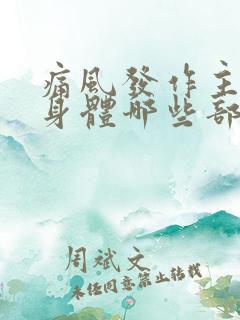 痛风發作主
身體哪些部
周斌文
未经同意禁止转载